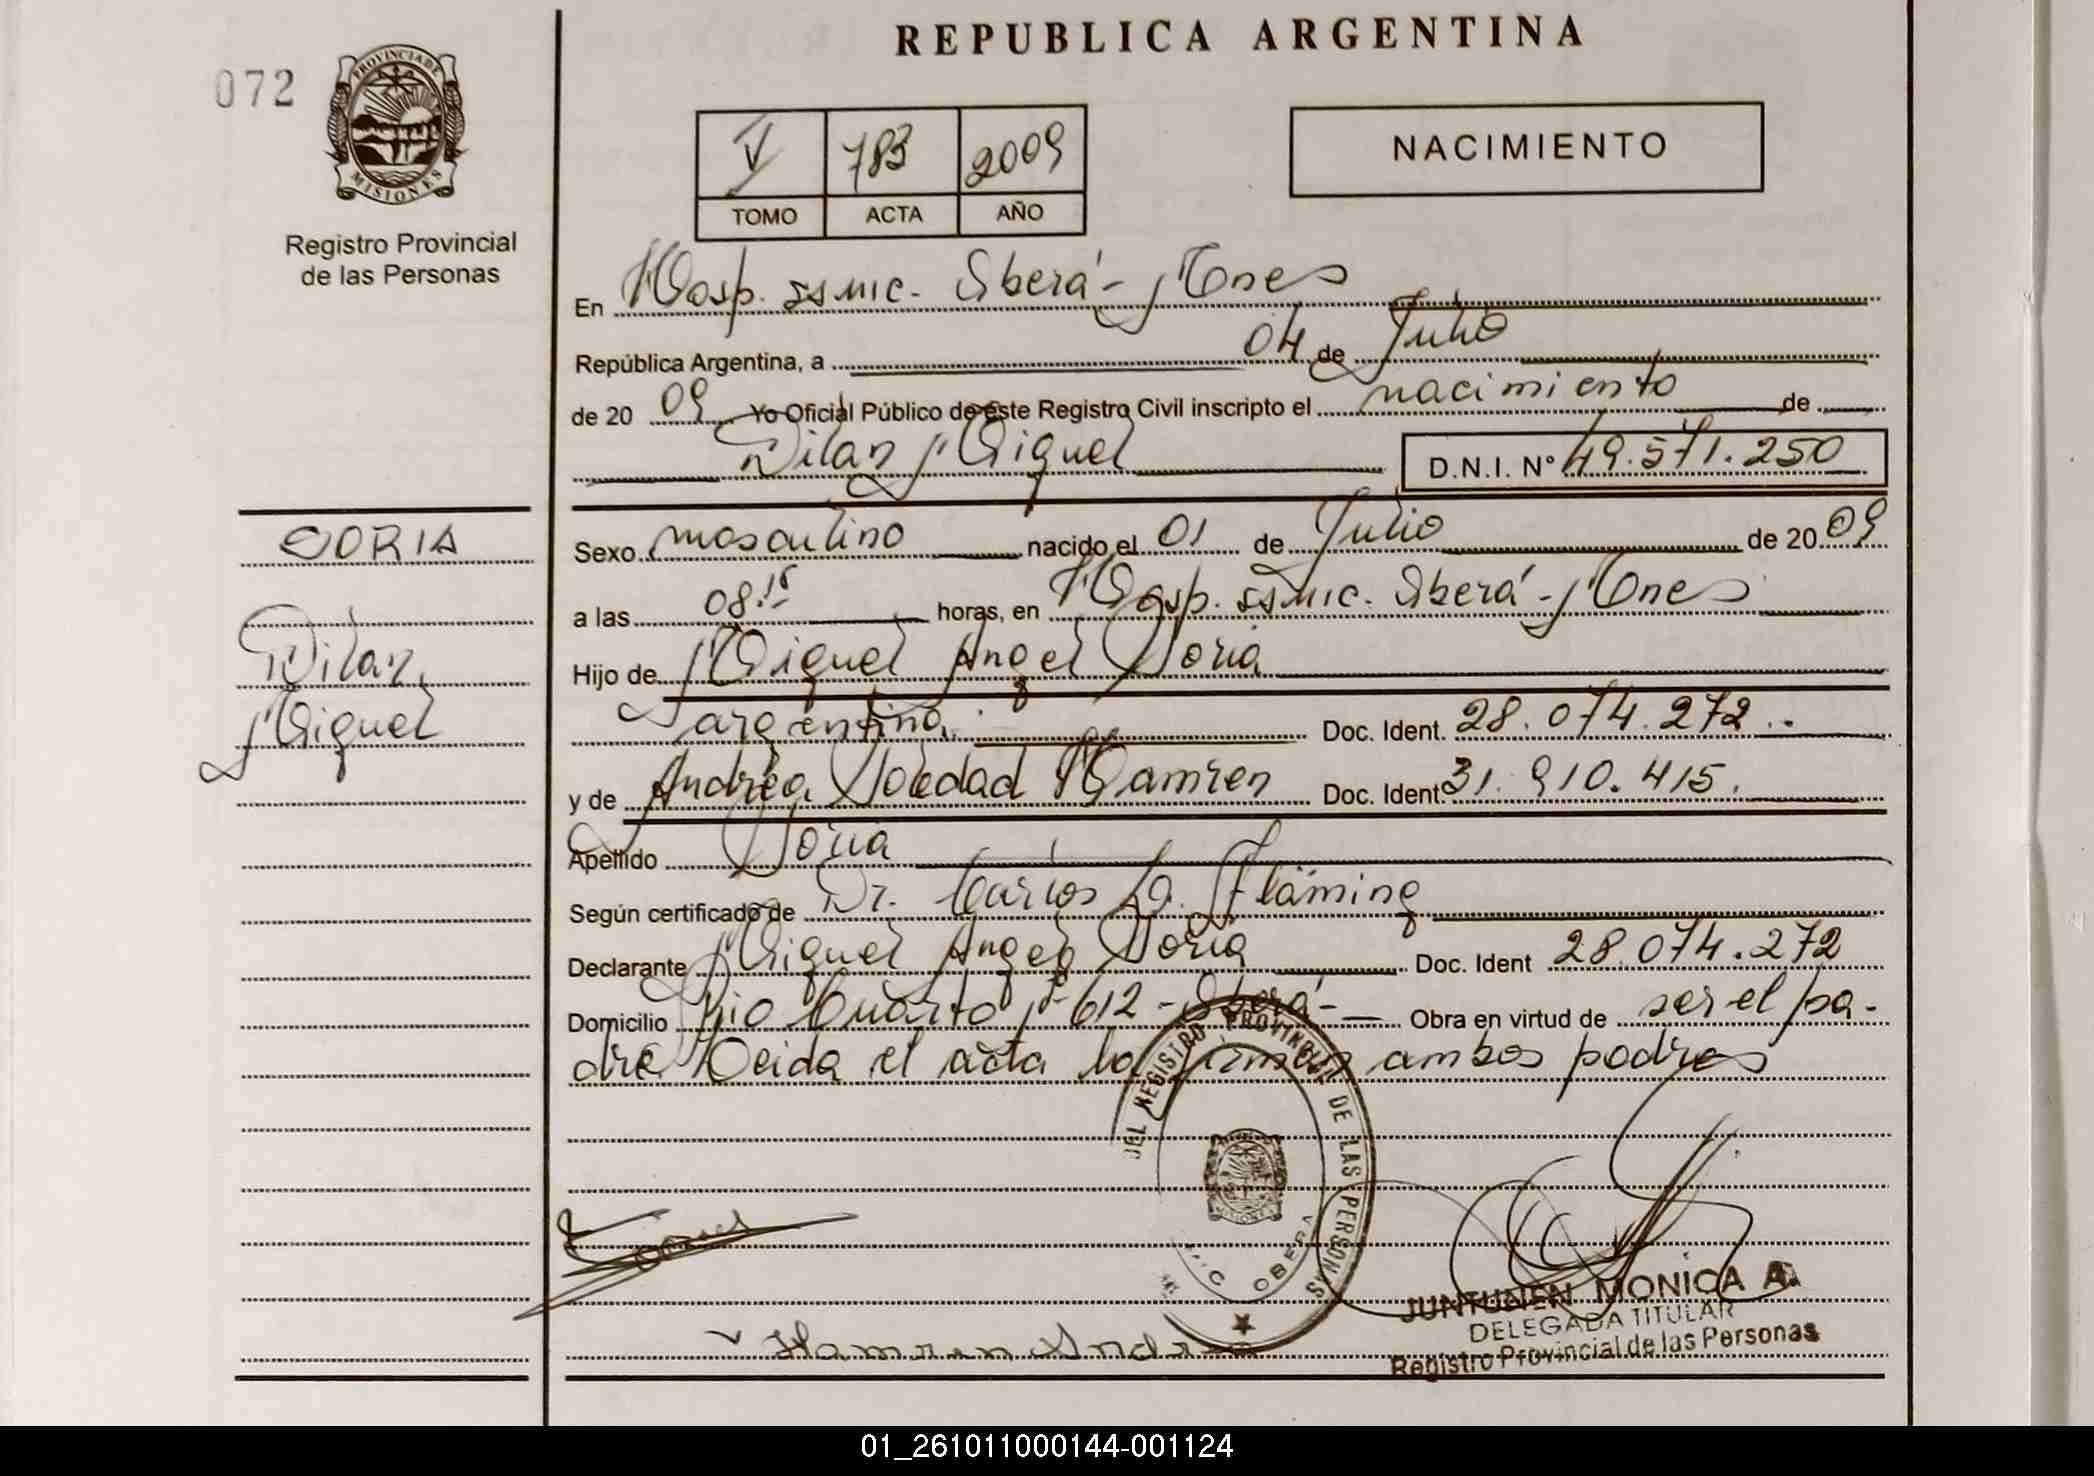 REPUBLICA ARGENTINA
072
PROVINCIA DE
MISIONES
Registro Provincial
de las Personas
V 783 2009
TOMO ACTA AÑO
NACIMIENTO
En Hosp. SSMIC. Oberá - Mnes
República Argentina, a 04 de Julio
de 20 09 Yo Oficial Público de este Registro Civil inscripto el nacimiento de
Dilan Miguel D.N.I. Nº 49.571.250
SORIA
Dilan
Miguel
Sexo masculino nacido el 01 de Julio de 20 09
a las 08.15 horas, en Hosp. SSMIC. Oberá - Mnes
Hijo de Miguel Angel Soria
argentino. Doc. Ident. 28.074.272
y de Andrea Soledad Hamren Doc. Ident. 31.910.415.
Apellido Soria
Según certificado de Dr. Carlos Fläming
Declarante Miguel Angel Soria Doc. Ident 28.074.272
Domicilio Rio Cuarto Nº 612 - Oberá - Obra en virtud de ser el pa-
dre Leida el acta la firman ambos padres
DEL REGISTRO PROVINCIAL DE LAS PERSONAS
MISIONES
OBERA
Hamren Andrea
JUNTUNEN MONICA A.
DELEGADA TITULAR
Registro Provincial de las Personas
01_261011000144-001124